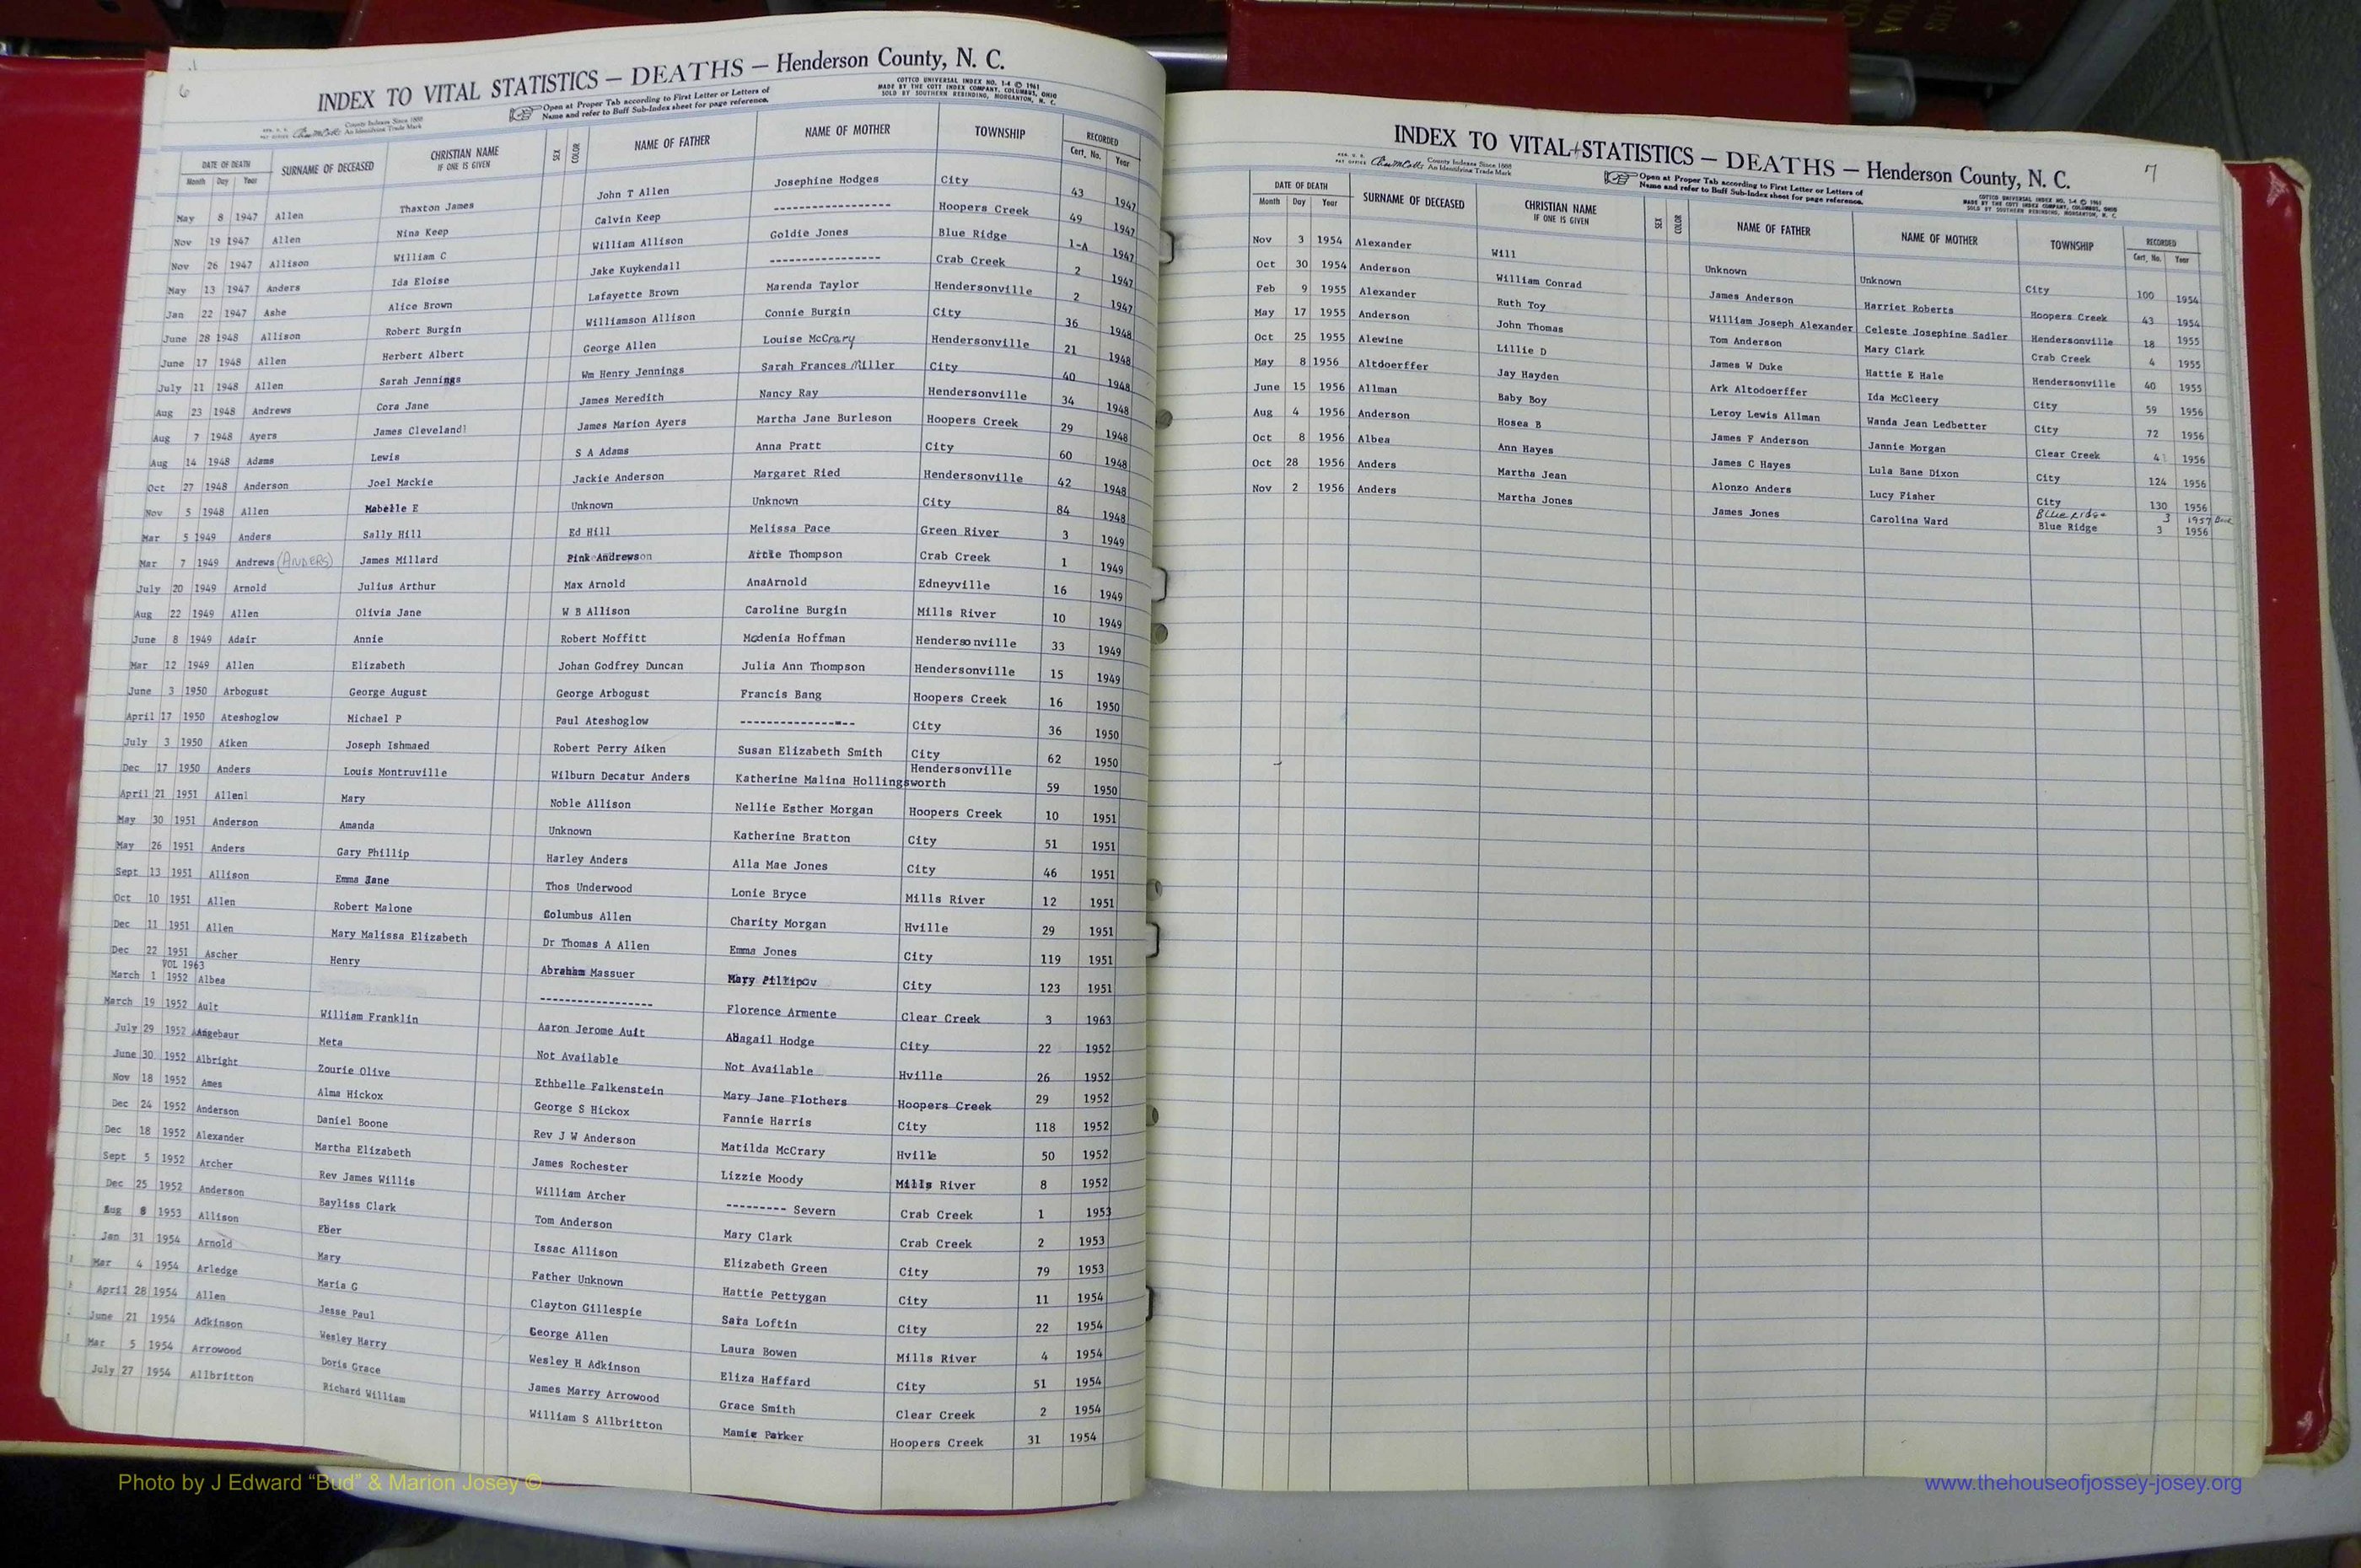 6
INDEX TO VITAL STATISTICS — DEATHS — Henderson County, N. C.
COTTCO UNIVERSAL INDEX NO. 1-4 © 1961
MADE BY THE COTT INDEX COMPANY, COLUMBUS, OHIO
SOLD BY SOUTHERN REBINDING, MORGANTON, N. C.
Open at Proper Tab according to First Letter or Letters of
Name and refer to Buff Sub-Index sheet for page reference.
County Indexes Since 1888
An Identifying Trade Mark
DATE OF DEATH SURNAME OF DECEASED CHRISTIAN NAME IF ONE IS GIVEN SEX COLOR NAME OF FATHER NAME OF MOTHER TOWNSHIP RECORDED
Month Day Year Cert. No. Year
May 8 1947 Allen Thaxton James John T Allen Josephine Hodges City 43 1947
Nov 19 1947 Allen Nina Keep Calvin Keep ----------------- Hoopers Creek 49 1947
Nov 26 1947 Allison William C William Allison Goldie Jones Blue Ridge 1-A 1947
May 13 1947 Anders Ida Eloise Jake Kuykendall ----------------- Crab Creek 2 1947
Jan 22 1947 Ashe Alice Brown Lafayette Brown Marenda Taylor Hendersonville 2 1947
June 28 1948 Allison Robert Burgin Williamson Allison Connie Burgin City 36 1948
June 17 1948 Allen Herbert Albert George Allen Louise McCrary Hendersonville 21 1948
July 11 1948 Allen Sarah Jennings Wm Henry Jennings Sarah Frances Miller City 40 1948
Aug 23 1948 Andrews Cora Jane James Meredith Nancy Ray Hendersonville 34 1948
Aug 7 1948 Ayers James Cleveland James Marion Ayers Martha Jane Burleson Hoopers Creek 29 1948
Aug 14 1948 Adams Lewis S A Adams Anna Pratt City 60 1948
Oct 27 1948 Anderson Joel Mackie Jackie Anderson Margaret Ried Hendersonville 42 1948
Nov 5 1948 Allen Mabelle E Unknown Unknown City 84 1948
Mar 5 1949 Anders Sally Hill Ed Hill Melissa Pace Green River 3 1949
Mar 7 1949 Andrews (ANDERS) James Millard Pink Andrews Artie Thompson Crab Creek 1 1949
July 20 1949 Arnold Julius Arthur Max Arnold AnaArnold Edneyville 16 1949
Aug 22 1949 Allen Olivia Jane W B Allison Caroline Burgin Mills River 10 1949
June 8 1949 Adair Annie Robert Moffitt Modenia Hoffman Hendersonville 33 1949
Mar 12 1949 Allen Elizabeth Johan Godfrey Duncan Julia Ann Thompson Hendersonville 15 1949
June 3 1950 Arbogust George August George Arbogust Francis Bang Hoopers Creek 16 1950
April 17 1950 Ateshoglow Michael P Paul Ateshoglow ----------------- City 36 1950
July 3 1950 Aiken Joseph Ishmaed Robert Perry Aiken Susan Elizabeth Smith City 62 1950
Dec 17 1950 Anders Louis Montruville Wilburn Decatur Anders Katherine Malina Hollingsworth Hendersonville 59 1950
April 21 1951 Allenl Mary Noble Allison Nellie Esther Morgan Hoopers Creek 10 1951
May 30 1951 Anderson Amanda Unknown Katherine Bratton City 51 1951
May 26 1951 Anders Gary Phillip Harley Anders Alla Mae Jones City 46 1951
Sept 13 1951 Allison Emma Jane Thos Underwood Lonie Bryce Mills River 12 1951
Oct 10 1951 Allen Robert Malone Columbus Allen Charity Morgan Hville 29 1951
Dec 11 1951 Allen Mary Malissa Elizabeth Dr Thomas A Allen Emma Jones City 119 1951
Dec 22 1951 Ascher Henry Abraham Massuer Mary Pillipov City 123 1951
VOL 1963
March 1 1952 Albea ----------------- Florence Armente Clear Creek 3 1963
March 19 1952 Ault William Franklin Aaron Jerome Ault Abagail Hodge City 22 1952
July 29 1952 Angebaur Meta Not Available Not Available Hville 26 1952
June 30 1952 Albright Zourie Olive Ethbelle Falkenstein Mary Jane Flothers Hoopers Creek 29 1952
Nov 18 1952 Ames Alma Hickox George S Hickox Fannie Harris City 118 1952
Dec 24 1952 Anderson Daniel Boone Rev J W Anderson Matilda McCrary Hville 50 1952
Dec 18 1952 Alexander Martha Elizabeth James Rochester Lizzie Moody Mills River 8 1952
Sept 5 1952 Archer Rev James Willis William Archer --------- Severn Crab Creek 1 1953
Dec 25 1952 Anderson Bayliss Clark Tom Anderson Mary Clark Crab Creek 2 1953
Aug 8 1953 Allison Eber Issac Allison Elizabeth Green City 79 1953
Jan 31 1954 Arnold Mary Father Unknown Hattie Pettygan City 11 1954
Mar 4 1954 Arledge Maria G Clayton Gillespie Sara Loftin City 22 1954
April 28 1954 Allen Jesse Paul George Allen Laura Bowen Mills River 4 1954
June 21 1954 Adkinson Wesley Harry Wesley H Adkinson Eliza Haffard City 51 1954
Mar 5 1954 Arrowood Doris Grace James Marry Arrowood Grace Smith Clear Creek 2 1954
July 27 1954 Allbritton Richard William William S Allbritton Mamie Parker Hoopers Creek 31 1954
7
INDEX TO VITAL STATISTICS — DEATHS — Henderson County, N. C.
County Indexes Since 1888
An Identifying Trade Mark
Open at Proper Tab according to First Letter or Letters of
Name and refer to Buff Sub-Index sheet for page reference.
COTTCO UNIVERSAL INDEX NO. 1-4 © 1961
MADE BY THE COTT INDEX COMPANY, COLUMBUS, OHIO
SOLD BY SOUTHERN REBINDING, MORGANTON, N. C.
DATE OF DEATH SURNAME OF DECEASED CHRISTIAN NAME IF ONE IS GIVEN SEX COLOR NAME OF FATHER NAME OF MOTHER TOWNSHIP RECORDED
Month Day Year Cert. No. Year
Nov 3 1954 Alexander Will Unknown Unknown City 100 1954
Oct 30 1954 Anderson William Conrad James Anderson Harriet Roberts Hoopers Creek 43 1954
Feb 9 1955 Alexander Ruth Toy William Joseph Alexander Celeste Josephine Sadler Hendersonville 18 1955
May 17 1955 Anderson John Thomas Tom Anderson Mary Clark Crab Creek 4 1955
Oct 25 1955 Alewine Lillie D James W Duke Hattie E Hale Hendersonville 40 1955
May 8 1956 Altdoerffer Jay Hayden Ark Altodoerffer Ida McCleery City 59 1956
June 15 1956 Allman Baby Boy Leroy Lewis Allman Wanda Jean Ledbetter City 72 1956
Aug 4 1956 Anderson Hosea B James F Anderson Jannie Morgan Clear Creek 4 1956
Oct 8 1956 Albea Ann Hayes James C Hayes Lula Bane Dixon City 124 1956
Oct 28 1956 Anders Martha Jean Alonzo Anders Lucy Fisher City 130 1956
Blue Ridge 3 1957
Nov 2 1956 Anders Martha Jones James Jones Carolina Ward Blue Ridge 3 1956
Photo by J Edward “Bud” & Marion Josey ©
www.thehouseofjossey-josey.org